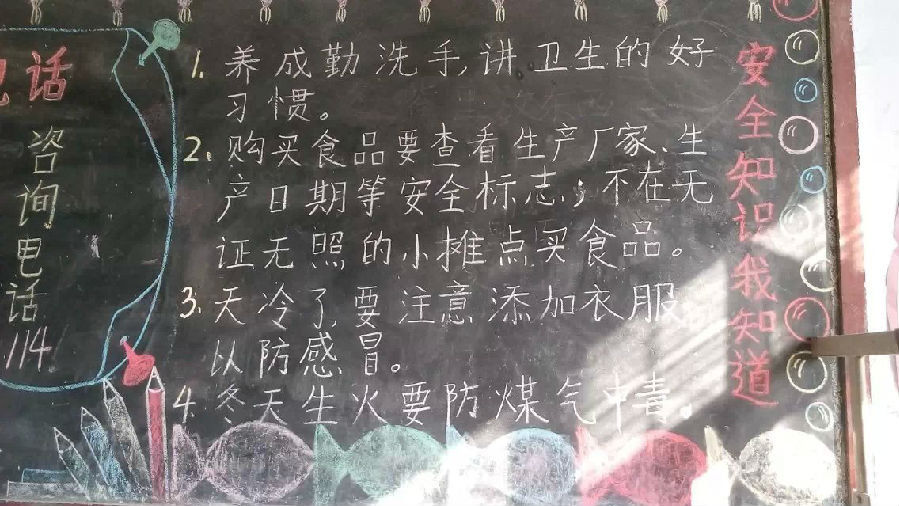 话
咨询电话
114
1. 养成勤洗手,讲卫生的好
习惯。
2. 购买食品要查看生产厂家、生
产日期等安全标志;不在无
证无照的小摊点买食品。
3. 天冷了,要注意添加衣服
以防感冒。
4. 冬天生火要防煤气中毒。
安全知识我知道